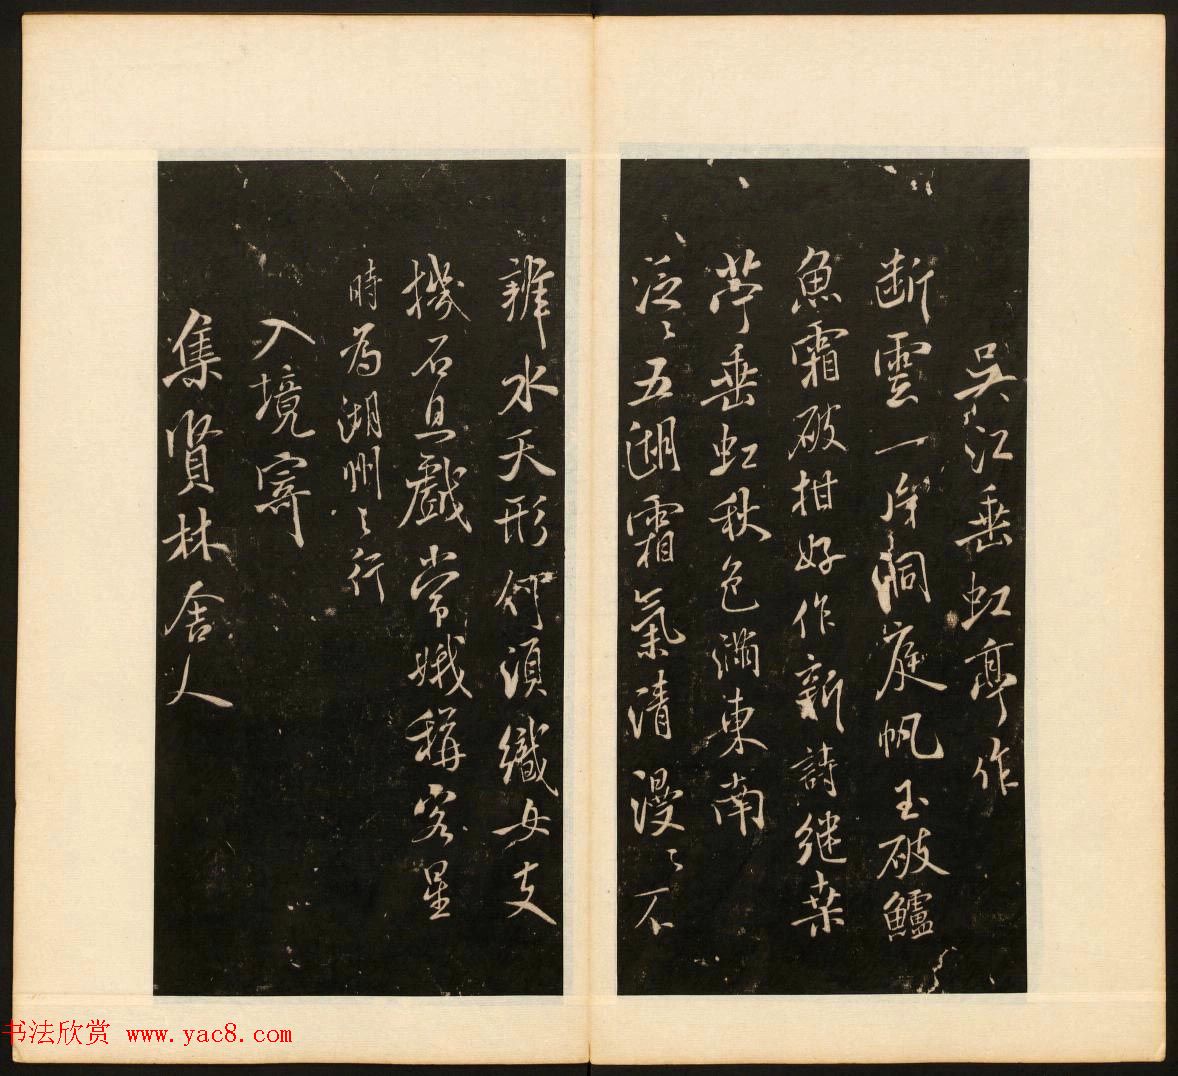 吳江垂虹亭作
断雲一片洞庭帆玉破鱸
魚霜破柑好作新詩継桒
苧垂虹秋色滿東南
泛〻五湖霜氣清漫〻不
辨水天形何須織女支
機石且戲常娥稱客星
時為湖州之行
入境寄
集賢林舍人
书法欣赏 www.yac8.com